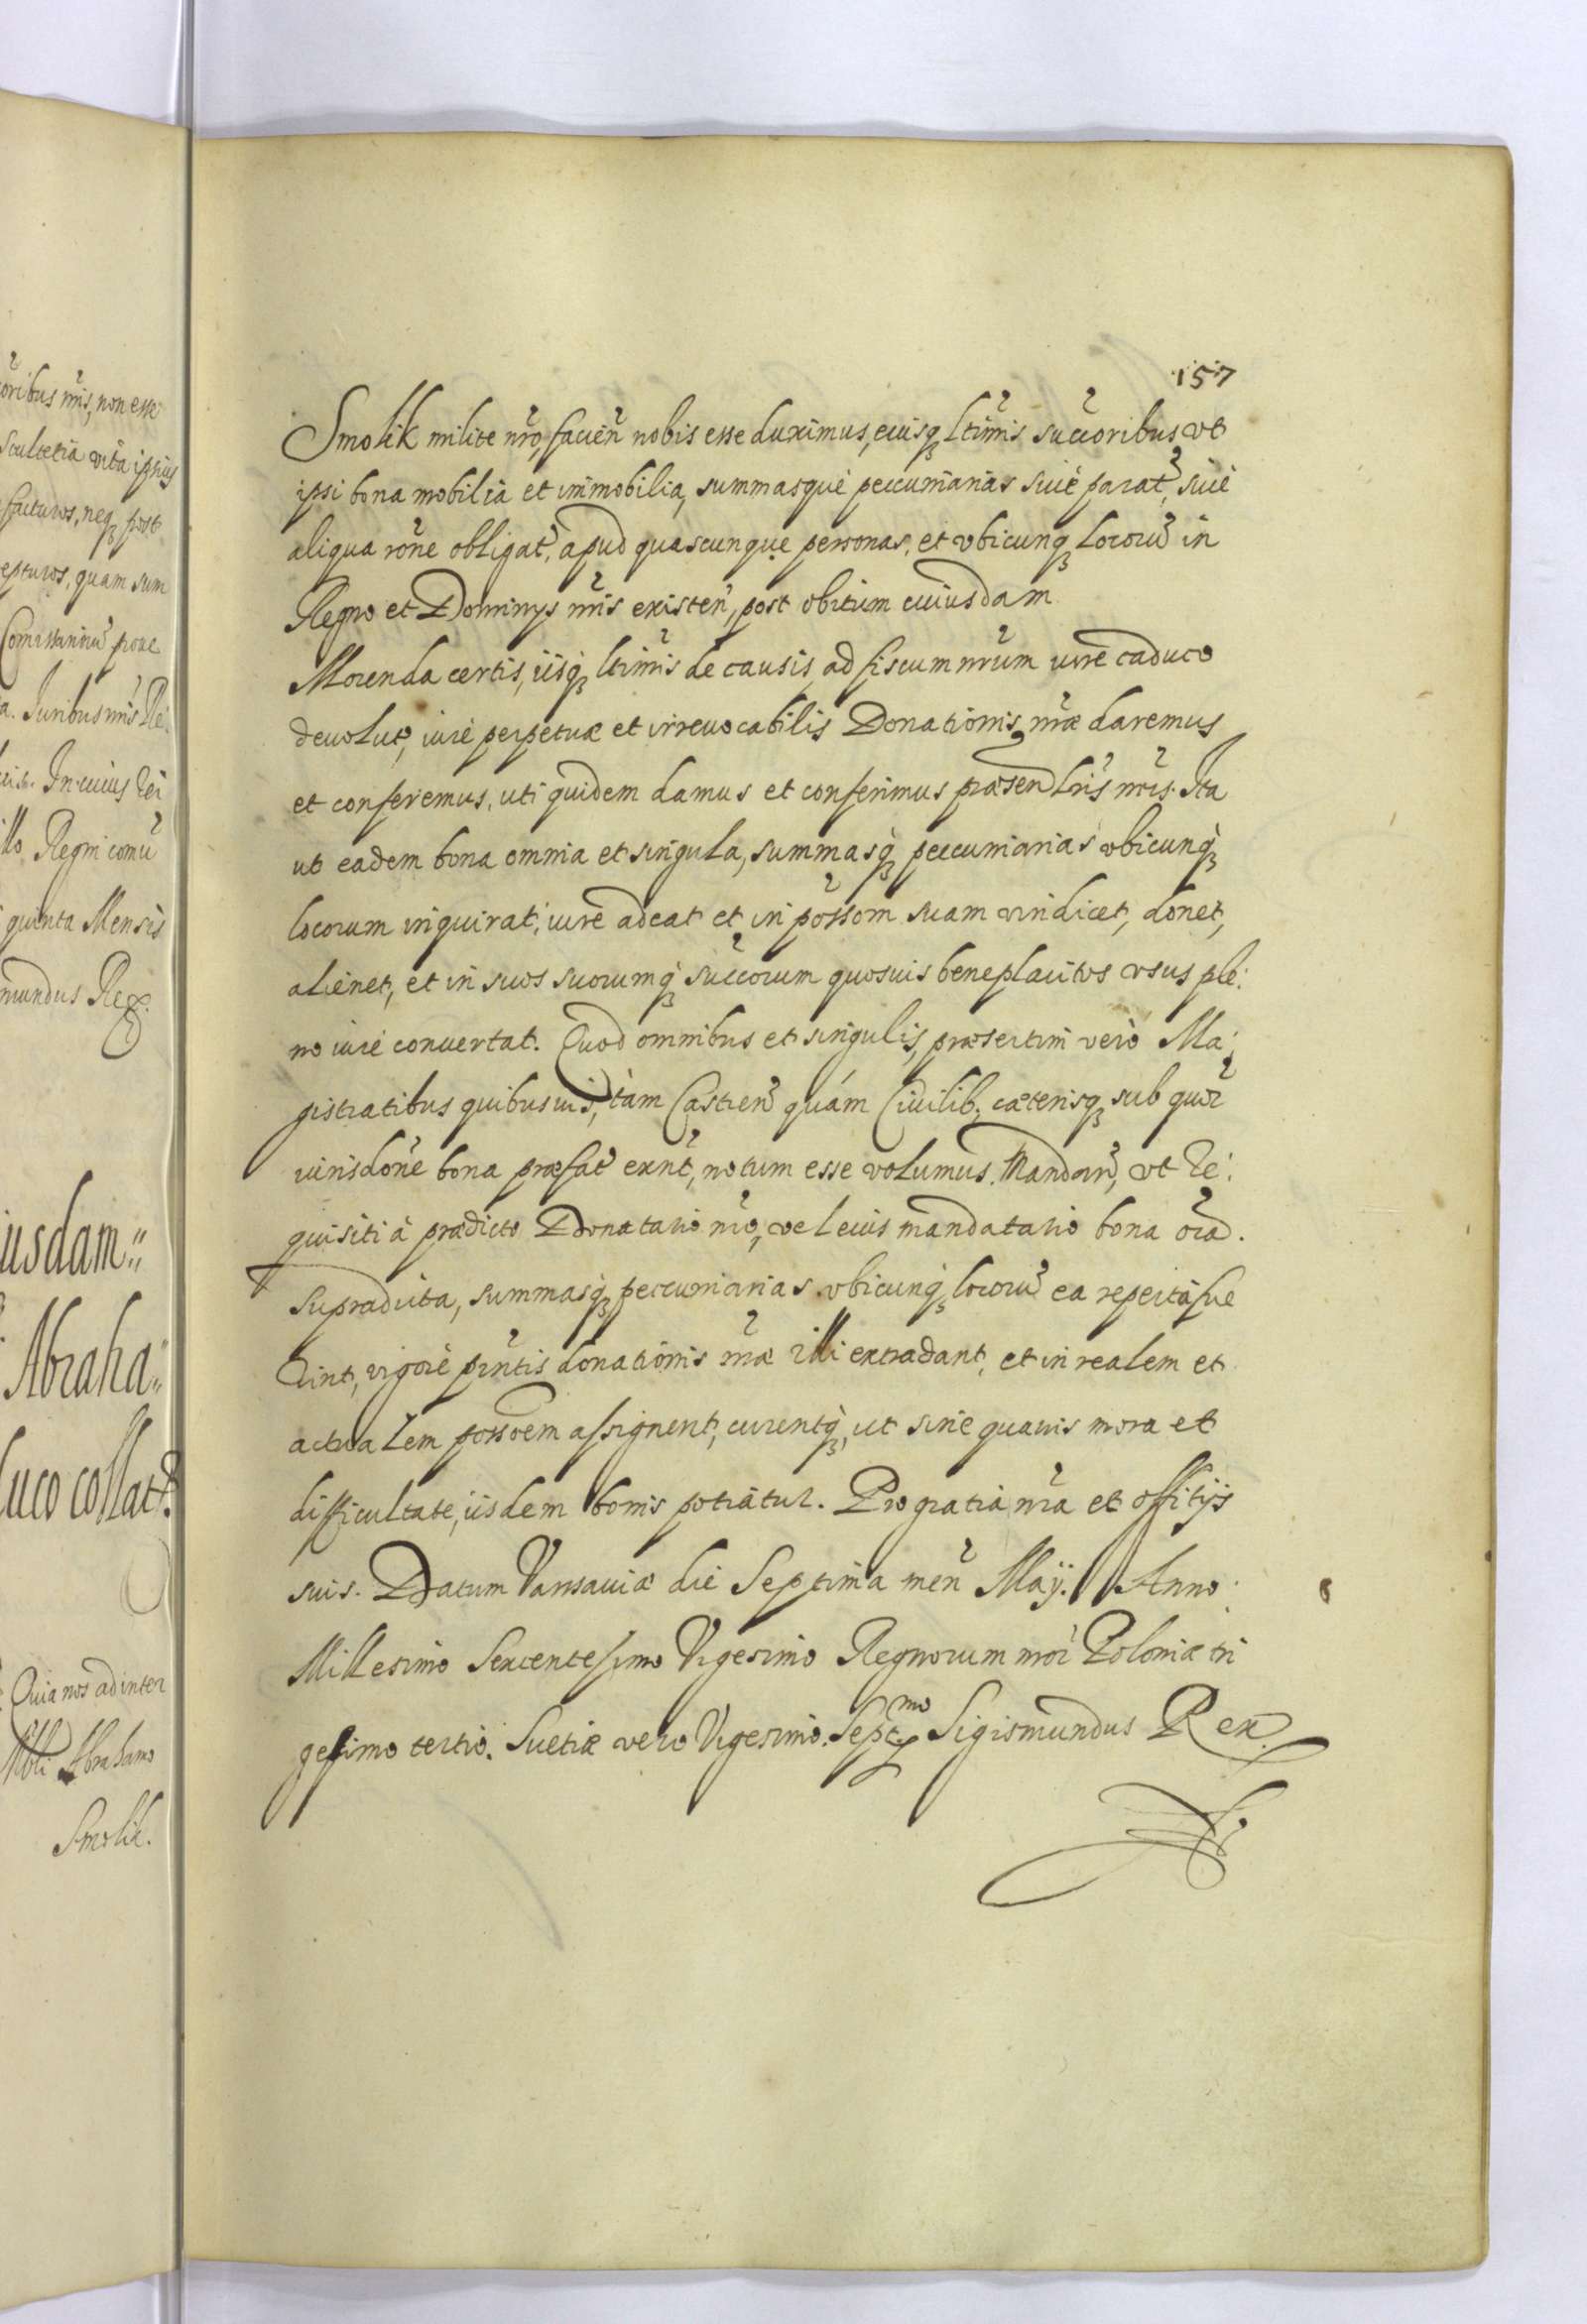 oribus nris, non esse
Scultetia vita ipsius
facturos, neq3 post
epturos, quam sum
a. Juribus nris Re:
In cuius rei
illo Regni comu
quinta Mensis
mundus Rex.
iusdam::
Abraha::
uco collat
Quia nos ad inter
Nbli Abrahamo
Smolik.
157
Smolik milite nro, facien nobis esse duximus, eiusq3 ltimis succoribus, vt
ipsi bona mobilia et immobilia, summasque peccuniarias siue parat, siue
aliqua rone obligat, apud quascunque personas, et vbicunq3 locoru in
Regno et Dominys nris existen, post obitum cuiusdam
Morenda certis, iisq3 ltimis de causis ad fiscum nrum iure caduco
deuolut, iure perpetuæ et irreuocabilis Donationis nræ daremus
et conferemus, uti quidem damus et conferimus præsen lris nris. Ita
ut eadem bona omnia et singula, summasq3 peccuniarias vbicunq3
locorum inquirat, iure adeat et in possom suam vindicet, donet,
alienet, et in suos suorumq3 succorum quosuis beneplacitos vsus ple:
no iure conuertat. Quod omnibus et singulis, præsertim vero Ma:
gistratibus quibusuis, tàm Castren quám Ciuilib, cæterisq3 sub quor
iurisdone bona præfat exnt, notum esse volumus. Mandan, vt re:
quisiti à prædicto Donatario nro, vel eius mandatario bona oia.
supradicta, summasq3 peccuniarias vbicunq3 locoru ea reperta fue
rint, vigore pntis donationis nræ illi extradant, et in realem et
actualem possoem assignent, curentq3, ut sine quauis mora et
difficultate, iisdem bonis potiatur. Pro gratia nra et offitijs
suis. Datum Varsauiæ die Septima men Maÿ. Anno
Millesimo Sexcentesimo Vigesimo Regnorum nror Poloniæ tri
gesimo tertio. Suetiæ vero Vigesimo. Septmo Sigismundus Rex.